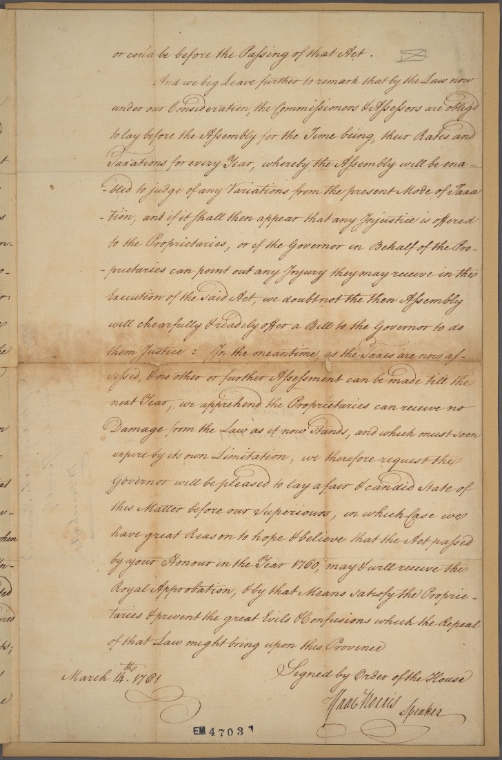 or could be before the Passing of that Act.
And we beg Leave further to remark that by the Law now
under our Consideration, the Commissioners & Assessors are oblig'd
to lay before the Assembly for the Time being, their Rates and
Taxations for every Year, whereby the Assembly will be ena-
-bled to judge of any Variations from the present Mode of Taxa
-tion, and if it shall then appear that any Injustice is offered
to the Proprietaries, or if the Governor in Behalf of the Pro-
-prietaries can point out any Injury they may receive in the
Execution of the said Act, we doubt not the then Assembly
will chearfully & readely offer a Bill to the Governor to do
them Justice: In the meantime, as the Taxes are now as-
-sessed, & no other or further Assessment can be made till the
next Year, we apprehend the Proprietaries can receive no
Damage from the Law as it now Stands, and which must soon
expire by its own Limitation, we therefore request the
Governor will be pleased to lay a fair & candid State of
this Matter before our Superiours, in which Case we
have great Reason to hope & believe that the Act passed
by your Honour in the Year 1760, may & will receive the
Royal Approbation, & by that Means satisfy the Proprie-
-taries & prevent the great Evils & Confusions which the Repeal
of that Law might bring upon this Province
Signed by Order of the House
March 14.th 1761
Isaac Norris Speaker
EM 4703